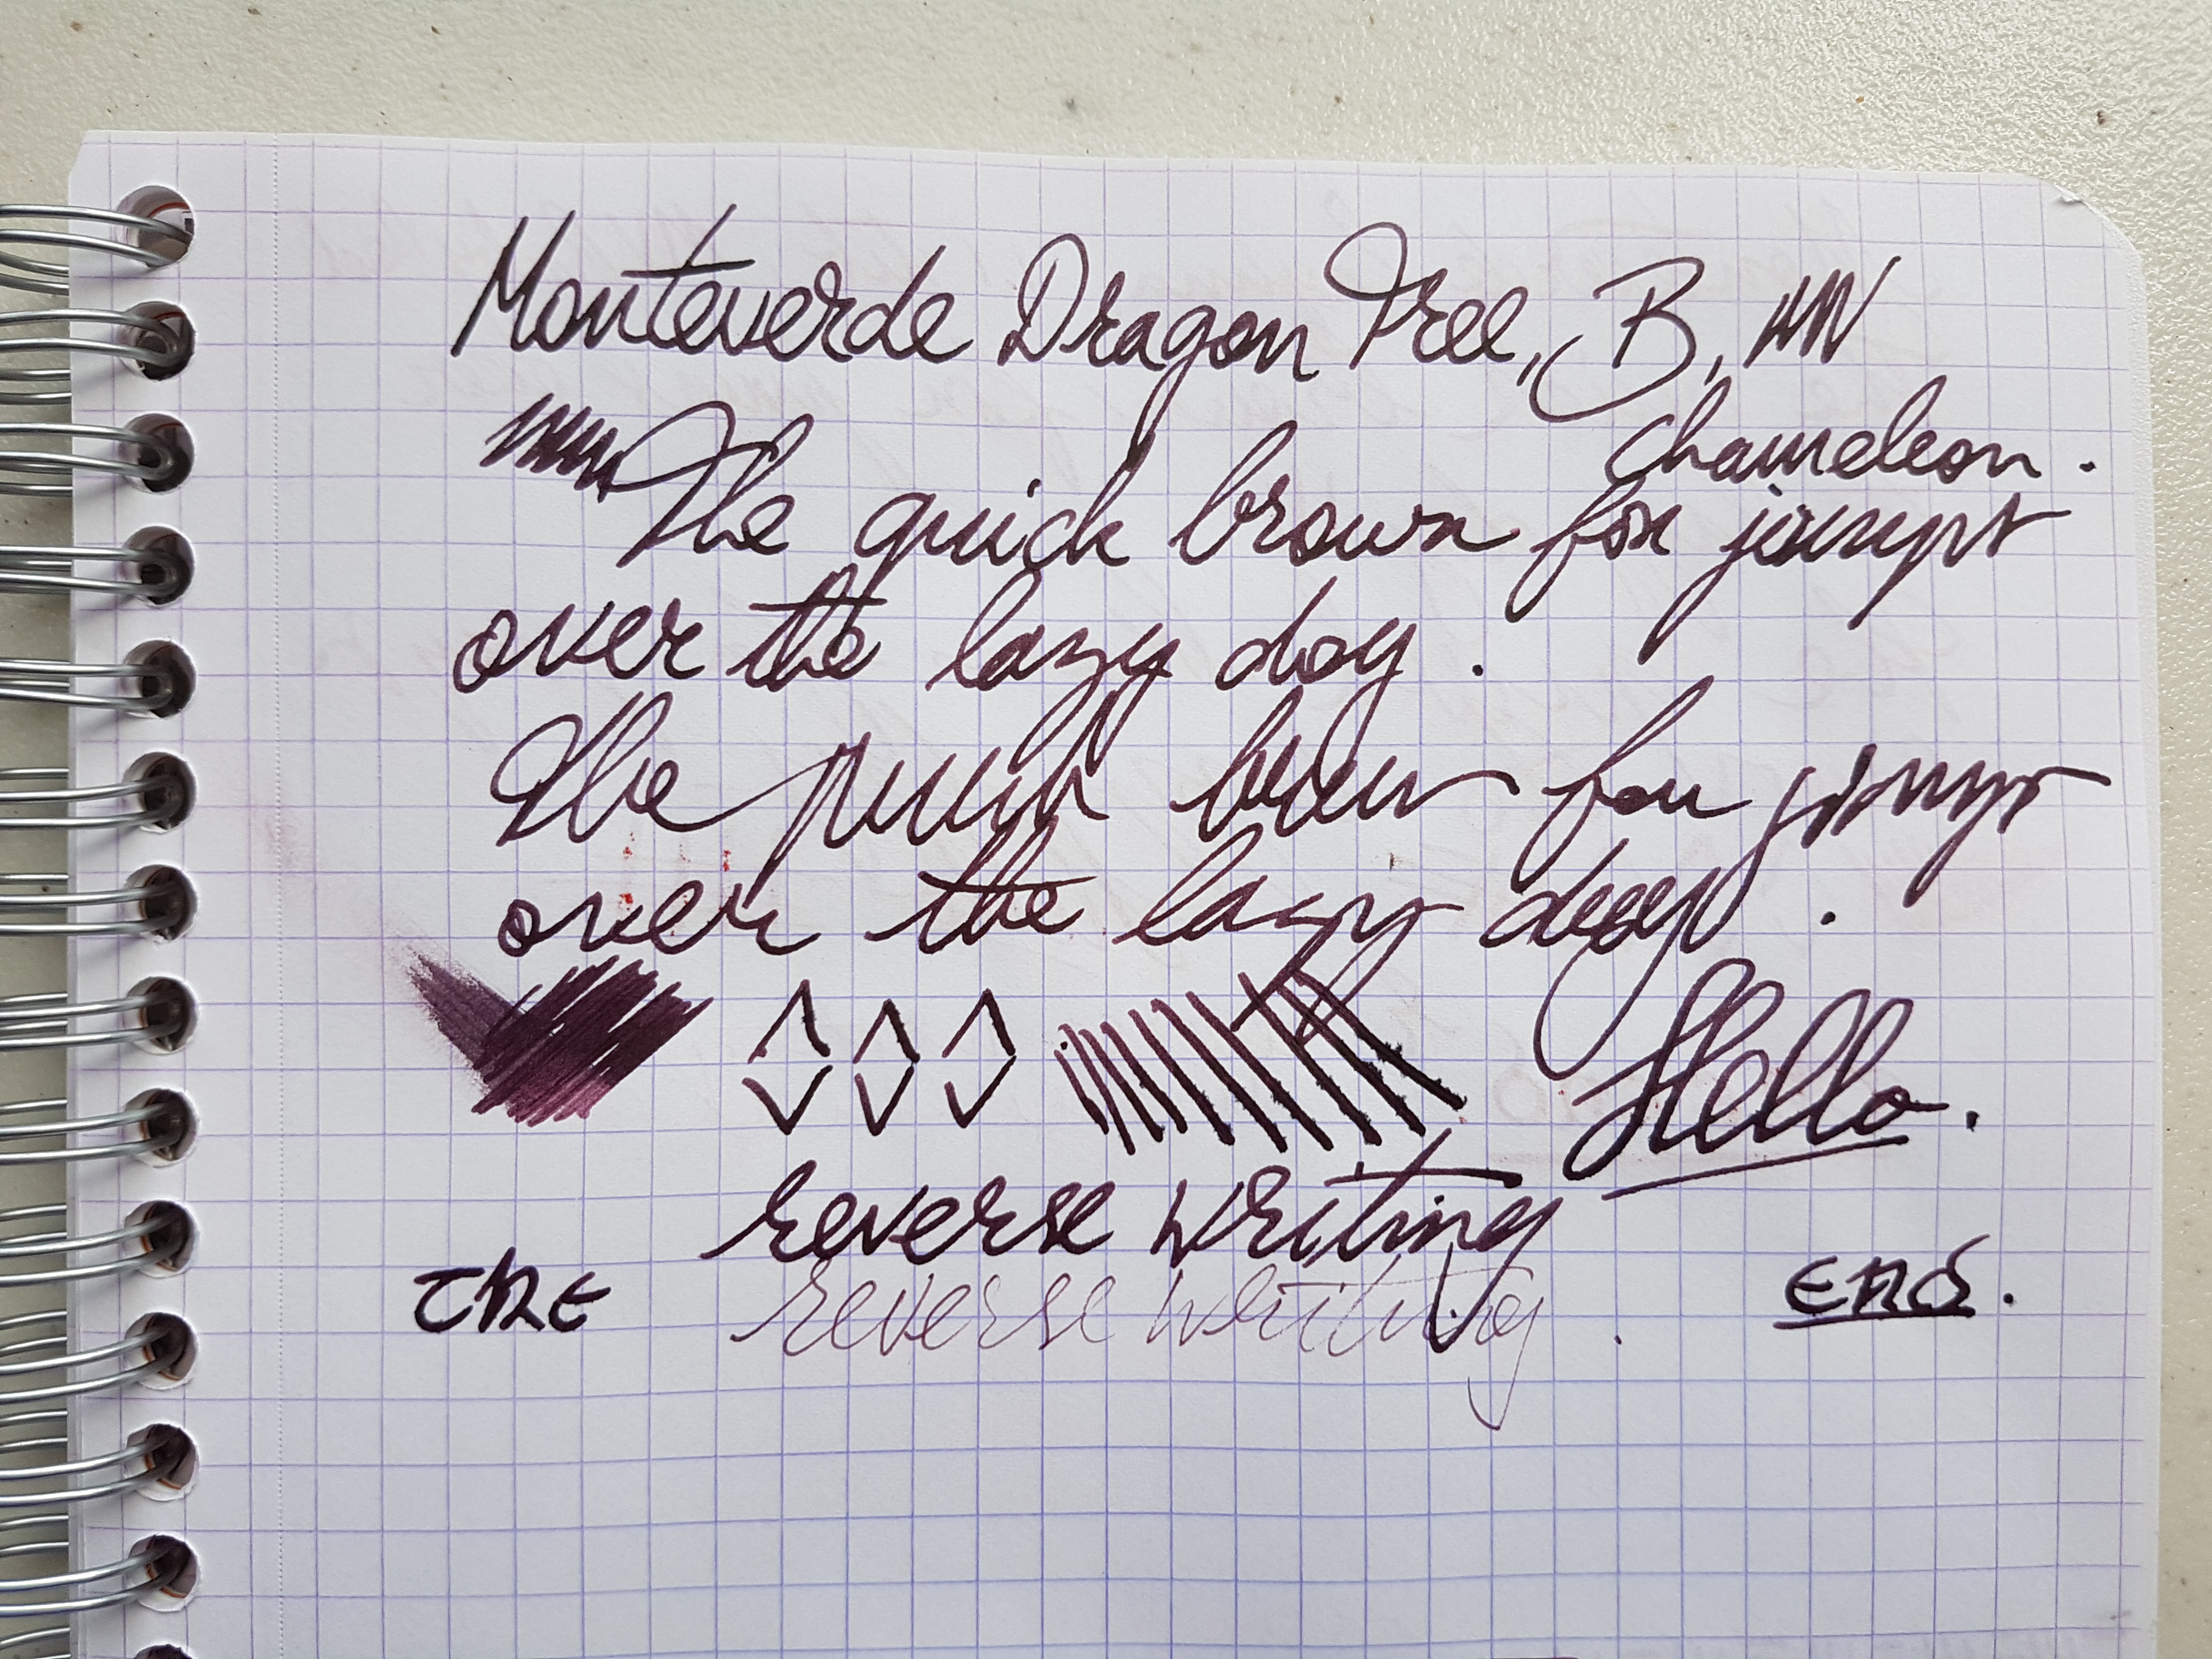 Monteverde Dragon Tree, B,
chameleon.
The quick brown fox jumpt
over the lazy dog.
The quick brown fox jumpt
over the lazy dog.
Hello.
reverse writing
reverse writing.
The end.